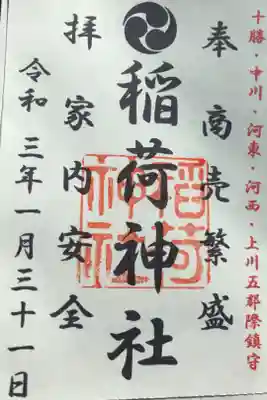 十勝・中川・河東・河西・上川五郡際鎮守
奉商売繁盛
稲荷神社
拝家内安全
令和三年一月三十一日
稲荷
神社